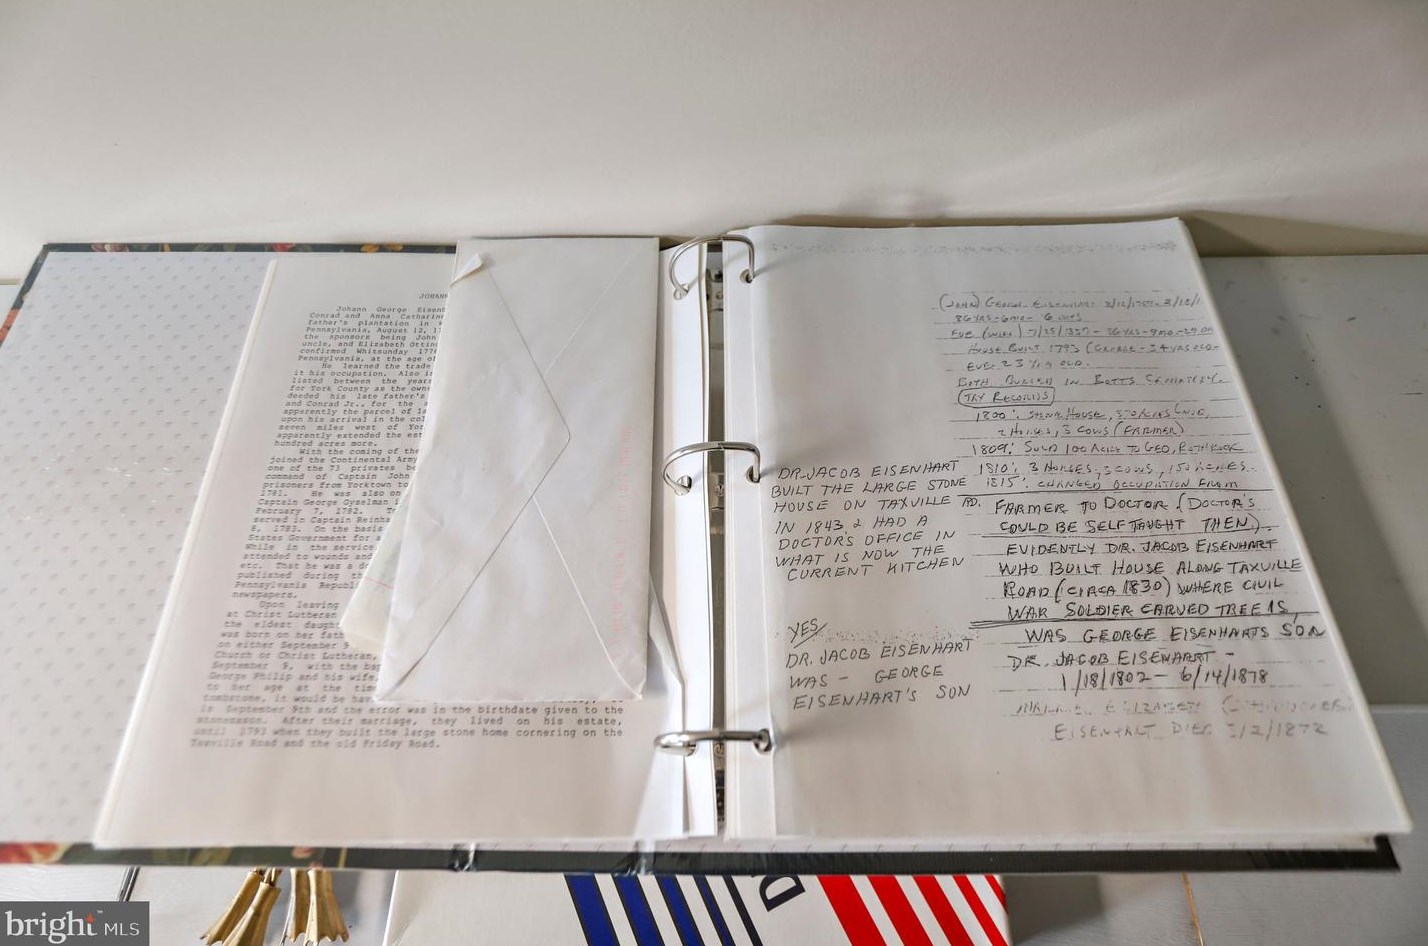 JOHANN
Johann George Eisenh
Conrad and Anna Catharine
father's plantation in
Pennsylvania, August 12, 17
the sponsors being John
uncle, and Elizabeth Ottin
confirmed Whitsunday 177
Pennsylvania, at the age of
He learned the trade
it his occupation. Also i
listed between the years
for York County as the owne
deeded his late father's
and Conrad Jr., for the
apparently the parcel of la
upon his arrival in the col
seven miles west of Yor
apparently extended the est
hundred acres more.
With the coming of the
joined the Continental Army
one of the 73 privates
command of Captain John
prisoners from Yorktown to
1781. He was also on
Captain George Gyselman
February 7, 1782.
served in Captain Reinha
8, 1783. On the basis
States Government for a
While in the service
attended to wounds and
etc. That he was a do
published during th
Pennsylvania Republ
newspapers.
Upon leaving
at Christ Lutheran
the eldest daught
was born on her fath
on either September 9
Church or Christ Lutheran,
September 9, with the bap
George Philip and his wife,
to her age at the time
tombstone, it would be
is September 9th and the error was in the birthdate given to the
stonemason. After their marriage, they lived on his estate,
until 1793 when they built the large stone home cornering on the
Taxville Road and the old Friday Road.
(JOHN) GEORGE EISENHART
86 YRS - 6 MO - 6 DAYS
EVE (WIFE)
HOUSE BUILT 1793 (GEORGE - 34 YRS OLD-
EVE: 23 YRS OLD.
BOTH BURIED IN BOTTS CEMETERY.
TAX RECORDS
1800: STONE HOUSE, STORIES
2 HORSES, 3 COWS (FARMER)
1809: SOLD 100 ACRES TO GEO. ROTHROCK
1810: 3 HORSES, 3 COWS, 150 ACRES.
1815: CHANGED OCCUPATION FROM
FARMER TO DOCTOR (DOCTOR'S
COULD BE SELF TAUGHT THEN).
EVIDENTLY DR. JACOB EISENHART
WHO BUILT HOUSE ALONG TAXVILLE
ROAD (CIRCA 1830) WHERE CIVIL
WAR SOLDIER CARVED TREE IS,
WAS GEORGE EISENHARTS SON
DR. JACOB EISENHART -
1/18/1802 - 6/14/1878
ELIZABETH
EISENHART DIED 2/1872
DR. JACOB EISENHART
BUILT THE LARGE STONE
HOUSE ON TAXVILLE RD.
IN 1843 & HAD A
DOCTOR'S OFFICE IN
WHAT IS NOW THE
CURRENT KITCHEN
YES
DR. JACOB EISENHART
WAS - GEORGE
EISENHART'S SON
D
bright MLS